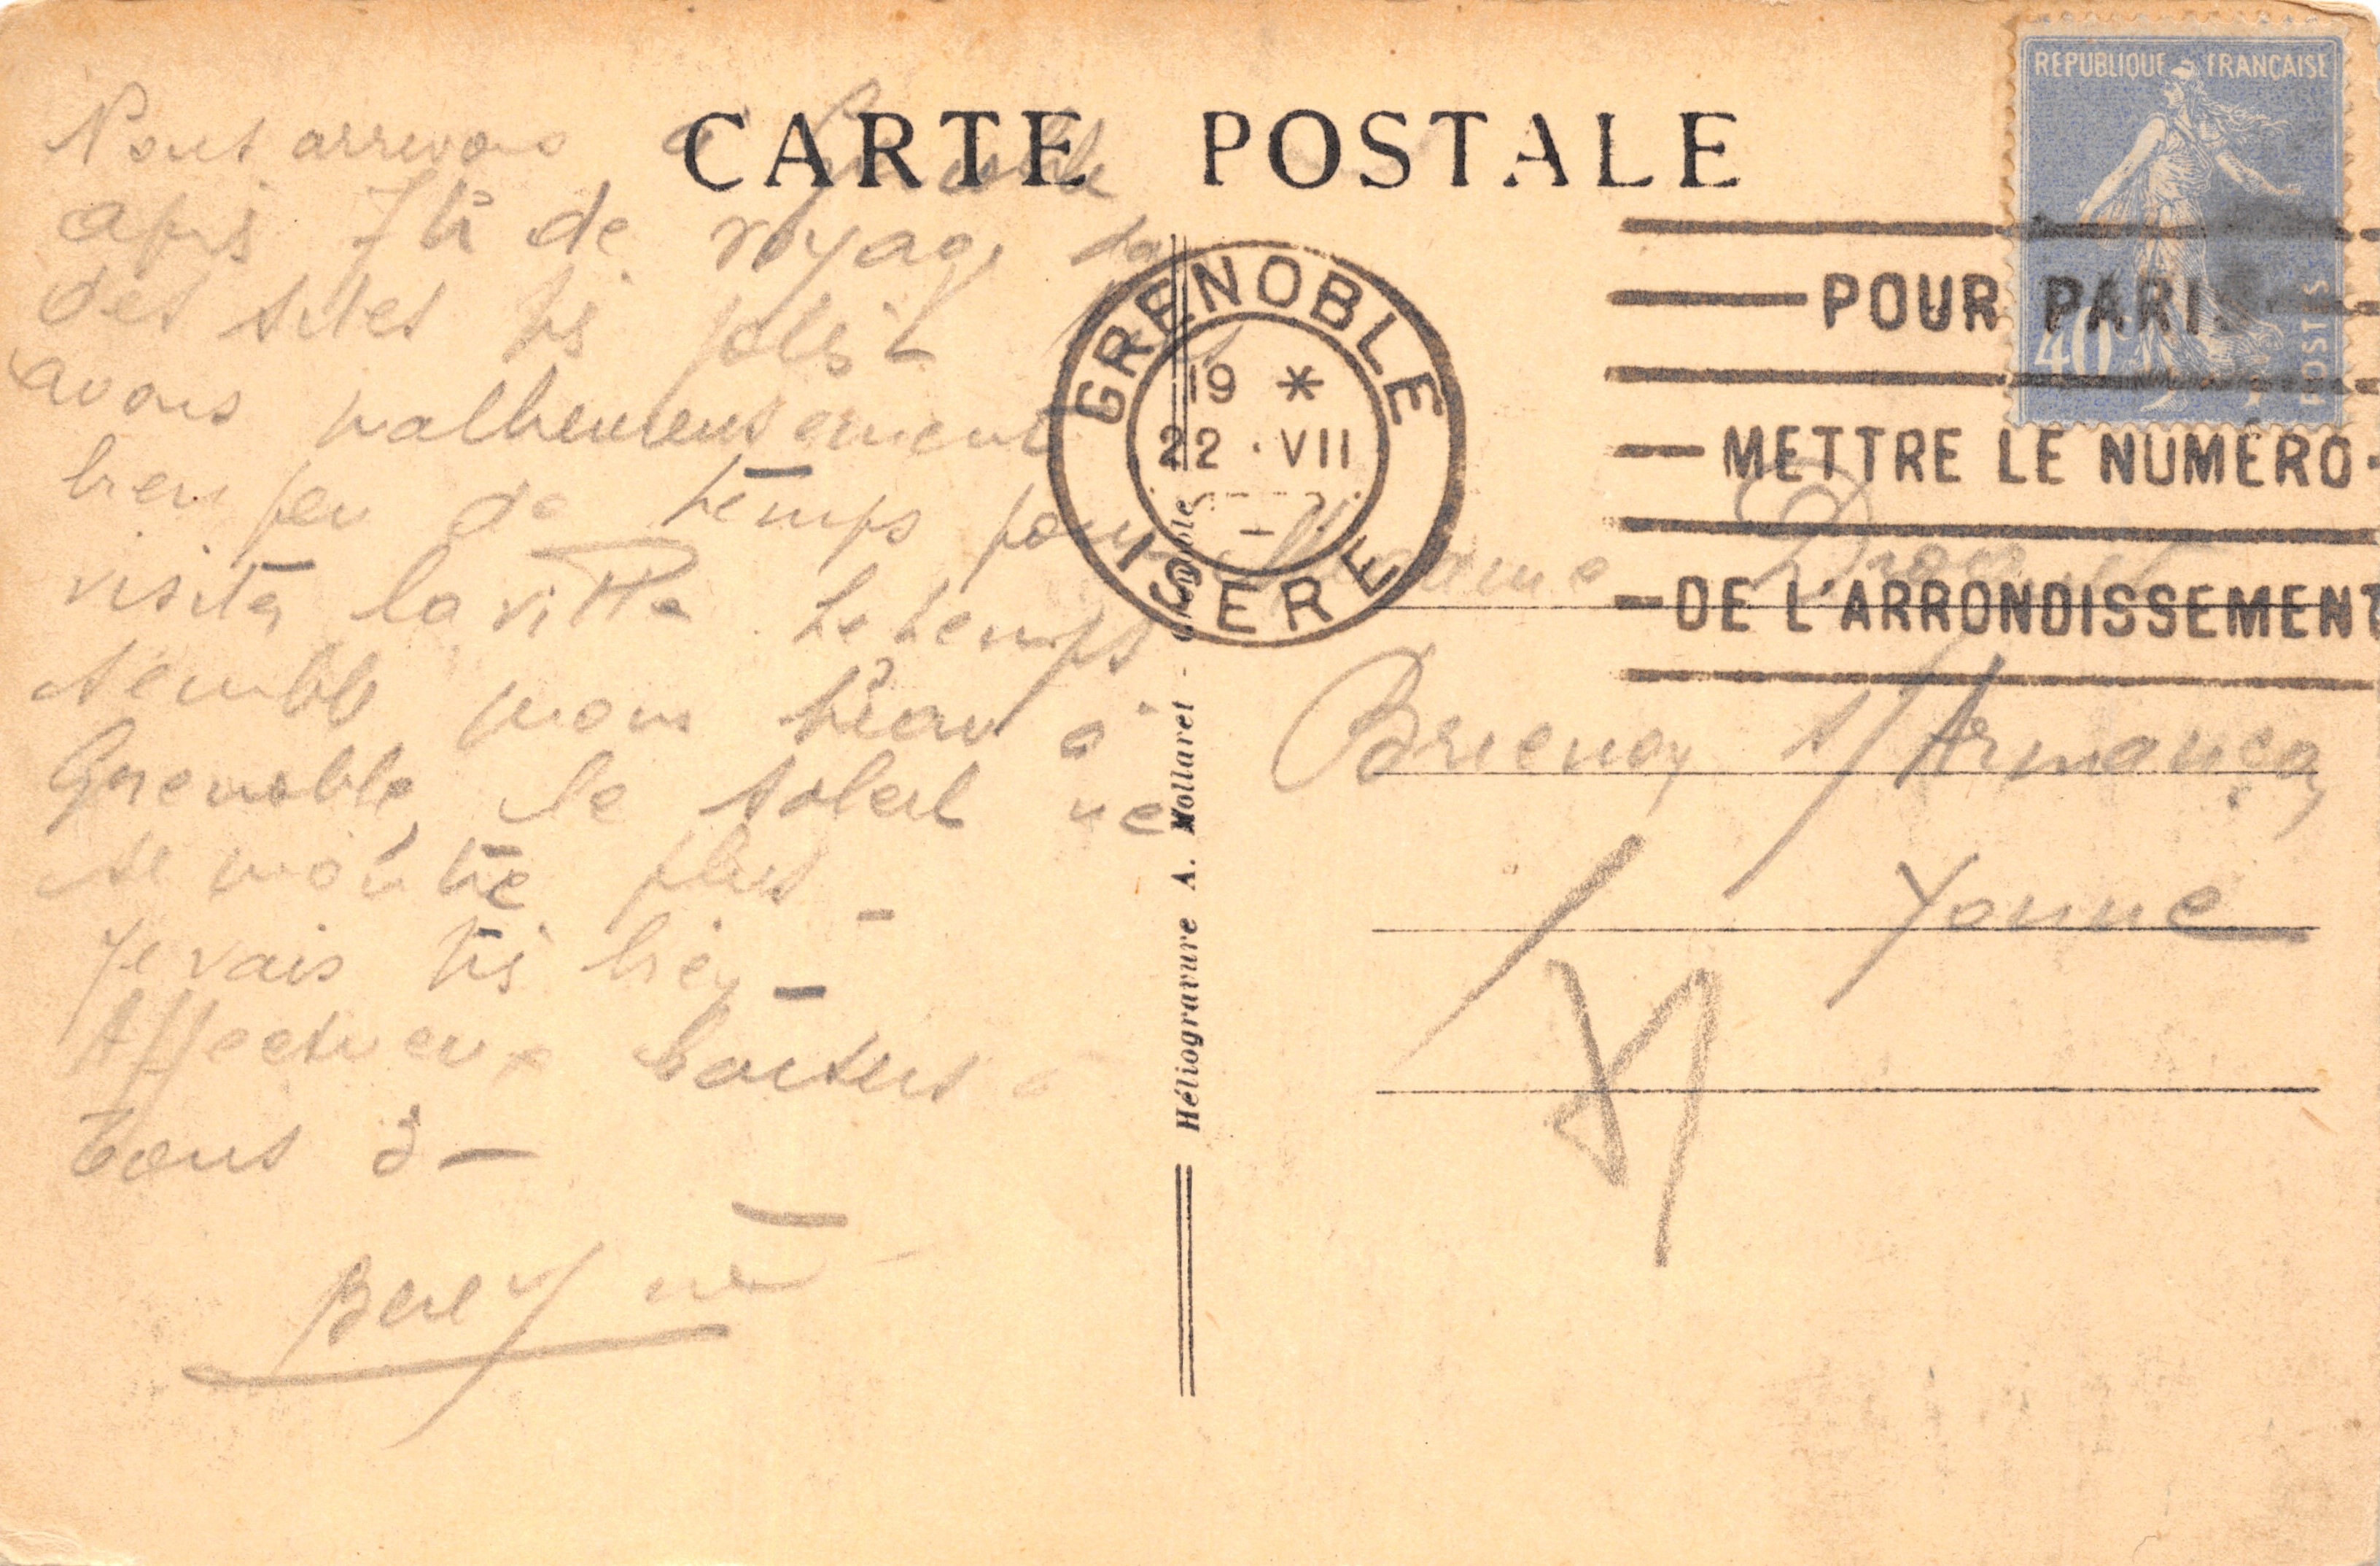 CARTE POSTALE
Nous arrivons à Grenoble
après 7 h de voyage
des sites très jolis
avons malheureusement
bien peu de temps pour
visiter la ville. Le temps
semble moins beau à
Grenoble, le soleil ne
se montre plus _
Je vais très bien _
Affectueux baisers à
tous 2 _
REPUBLIQUE FRANCAISE
40
POSTES
GRENOBLE
19 *
22 · VII
ISERE
POUR PARIS
METTRE LE NUMÉRO
DE L'ARRONDISSEMENT
Madame
Brienon s/ Armançon
Yonne
Héliogravure A. Mollaret - Grenoble